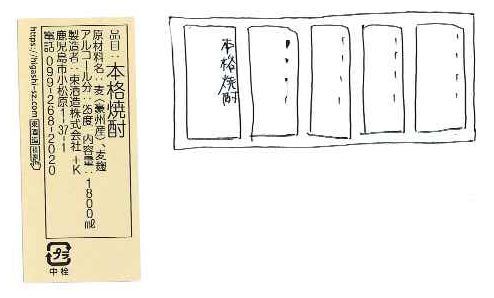 品目：本格焼酎
原材料名：麦(豪州産)、麦麹
アルコール分：25度 内容量：1800㎖
製造者：東酒造株式会社 +K
鹿児島市小松原1-37-1
電話 099-268-2020
https://higashi-sz.com 東酒造 検索
プラ
中栓
本格焼酎